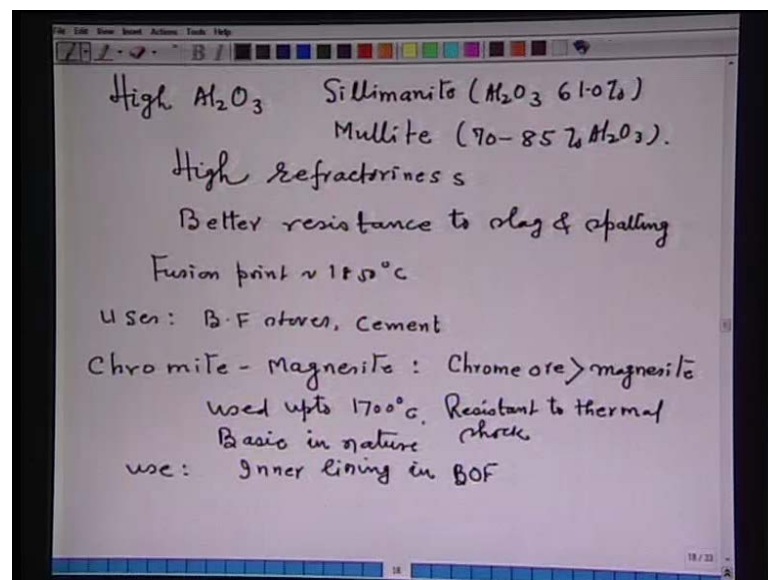 File Edit View Insert Actions Tools Help
High Al2O3 Sillimanite (Al2O3 61.0%)
Mullite (70-85% Al2O3).
High refractoriness
Better resistance to slag & spalling
Fusion point ~ 1850°C
Uses: B.F stoves, Cement
Chromite - Magnesite: Chrome ore > magnesite
used upto 1700°C. Resistant to thermal
Basic in nature shock
use: Inner lining in BOF
18/33
18